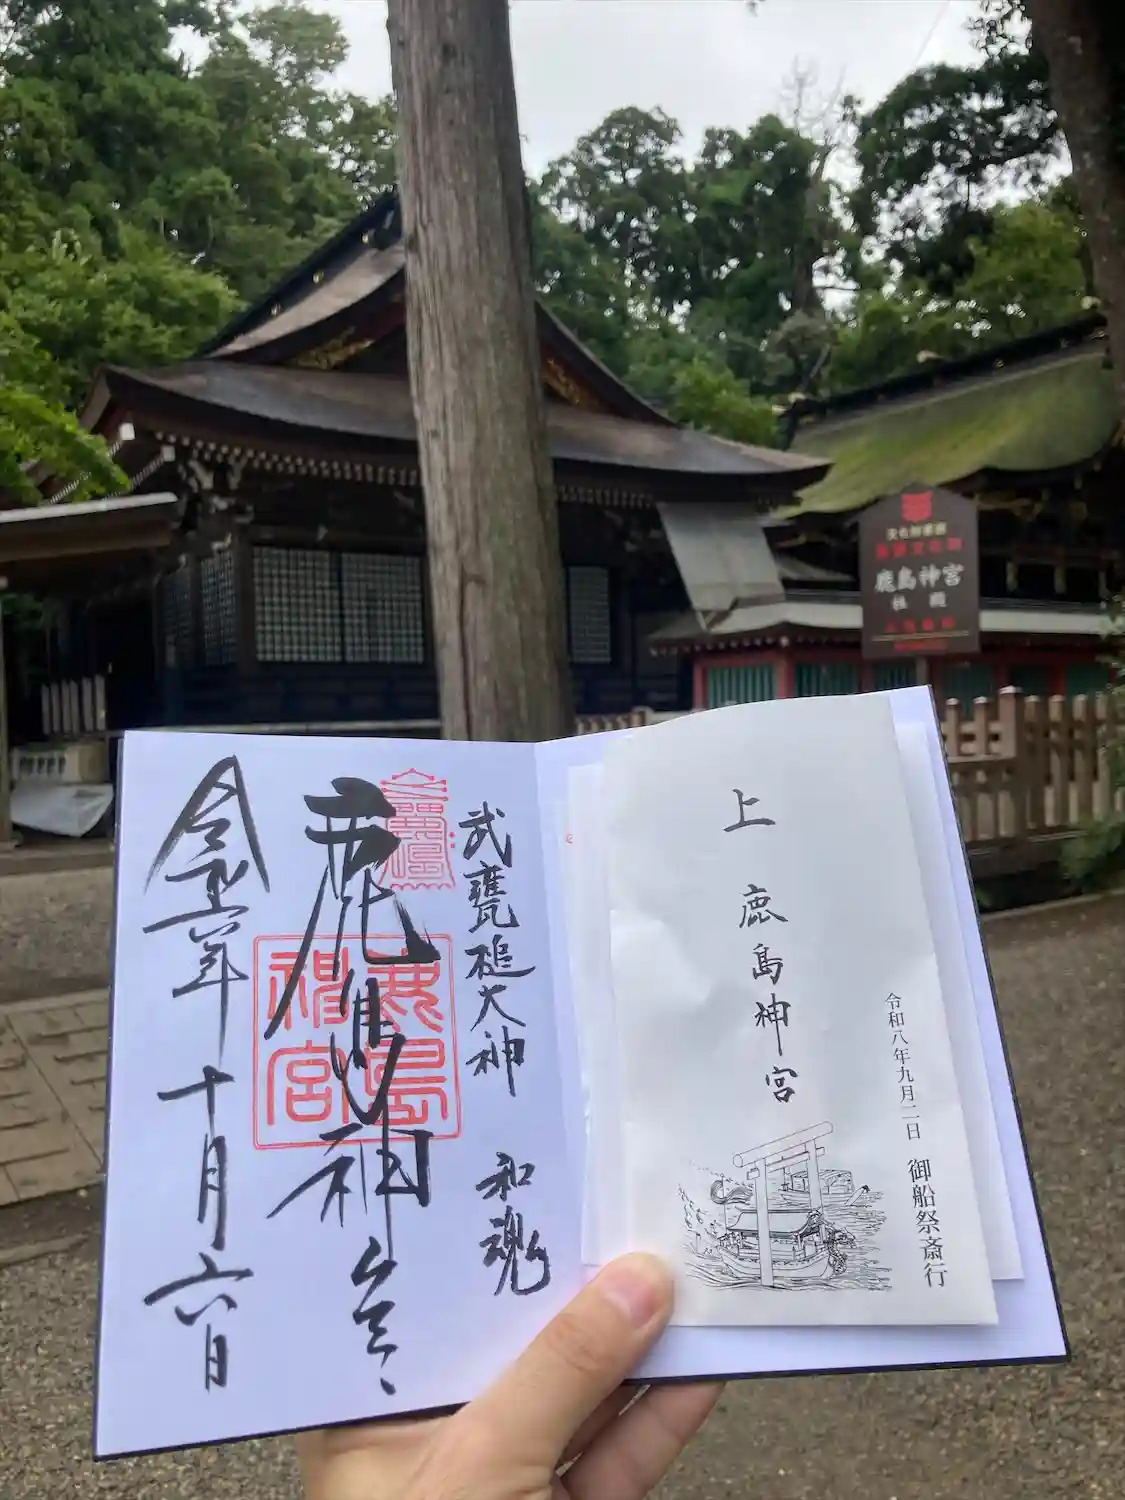 武甕槌大神 和魂
鹿島神宮
鹿島
神宮
令和六年十月六日
上 鹿島神宮
令和八年九月二日 御船祭斎行
鹿島神宮
社殿